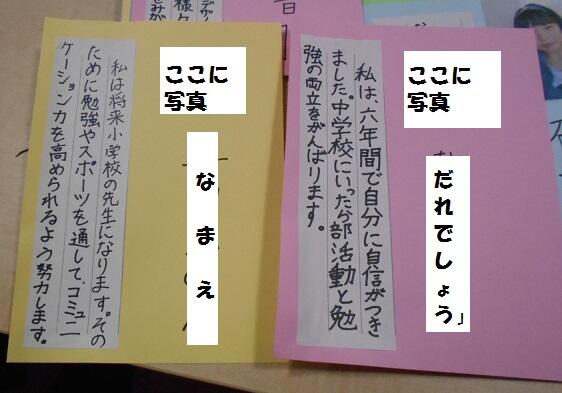 ここに
写真
だれでしょう」
私は、六年間で自分に自信がつき
ました。中学校にいったら部活動と勉
強の両立をがんばります。
ここに
写真
なまえ
私は将来小学校の先生になります。その
ために勉強やスポーツを通して、コミュニ
ケーション力を高められるよう努力します。